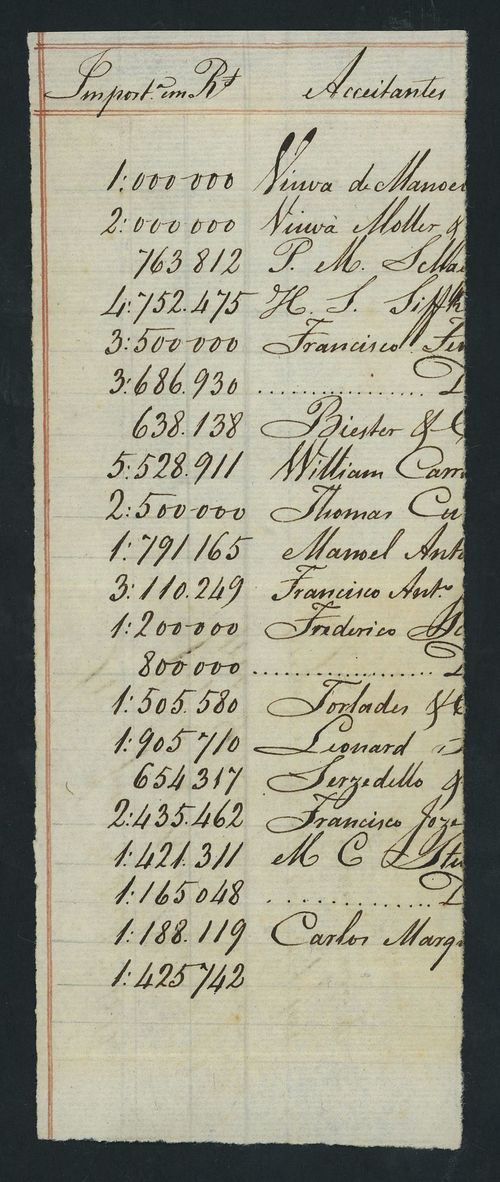 Import.ᵃ em Rˢ Acceitantes
1:000000 Viuva de Manoel
2:000000 Viuva Moller &
763812 P. M.
4:752.475 H. S.
3:500000 Francisco
3:686.930 ................ D
638.138 Biester & C
5:528.911 William
2:500000 Thomas
1:791165 Manoel Anto
3:110.249 Francisco Antᵒ
1:200000 Frederico
800000 ................ D
1:505.580 Torlades & C
1:905710 Leonard
654317 Serzedello &
2:435.462 Francisco Joze
1:421.311 M C
1:165048 ................ D
1:188.119 Carlos Marq
1:425742